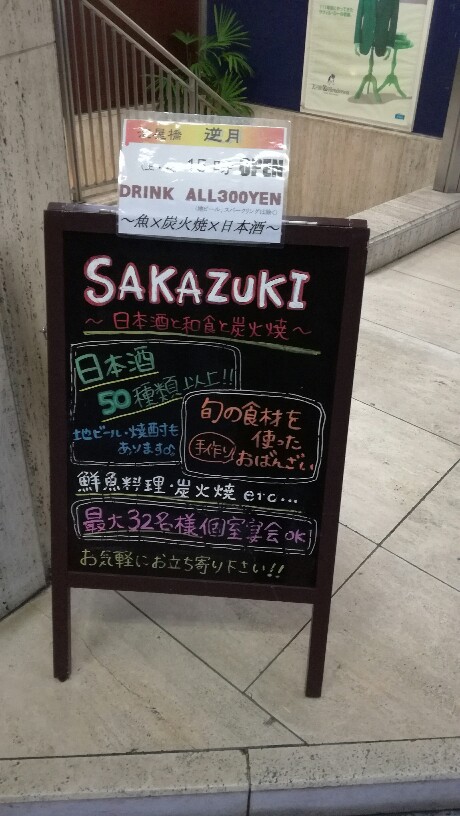 逆月
15時 OPEN
DRINK ALL300YEN
～魚×炭火焼×日本酒～
SAKAZUKI
～日本酒と和食と炭火焼～
日本酒
50種類以上!!
地ビール・焼酎も
あります♪
旬の食材を
使った
手作り おばんざい
鮮魚料理・炭火焼 etc...
最大32名様個室宴会OK
お気軽にお立ち寄り下さい!!